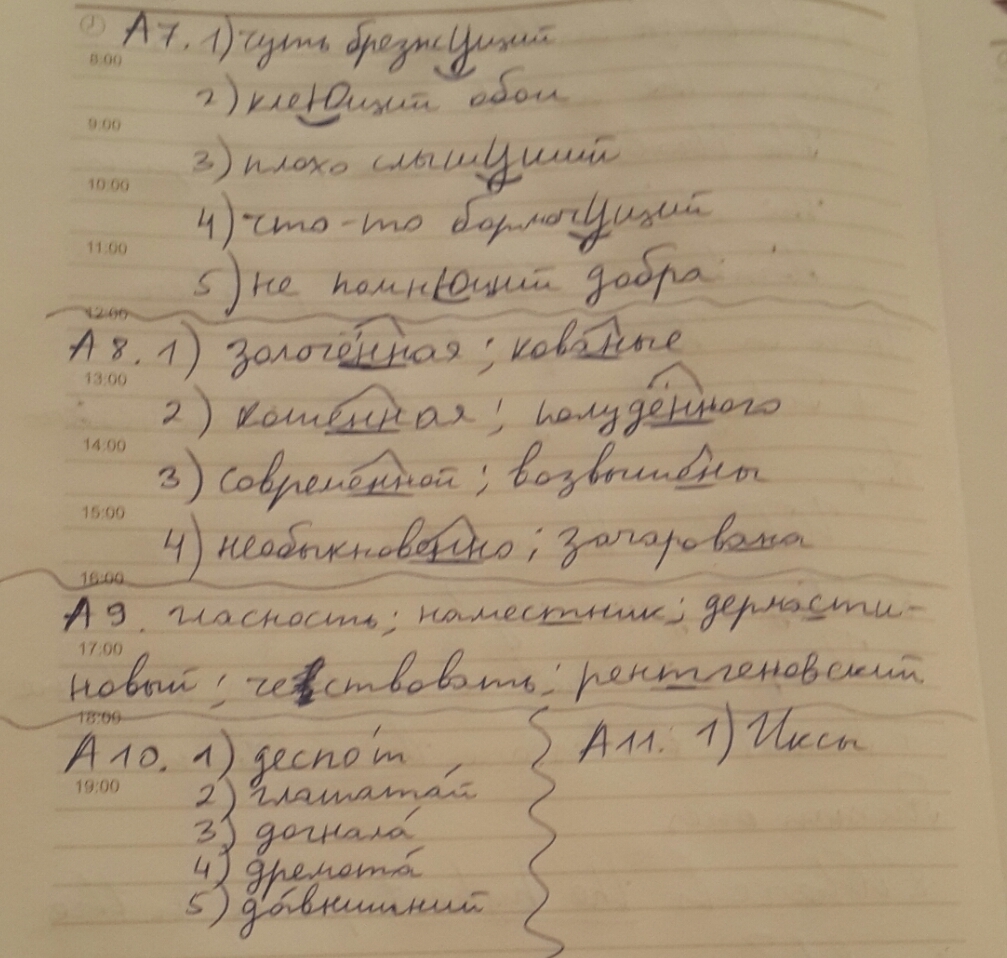 А7. 1) чуть брезжУщий
8:00
2) клеЮщий обои
9:00
3) плохо слышУщий
10:00
4) что-то бормочУщий
11:00
5) не помнЮщий добра
12:00
А8. 1) золочённая; кованые
13:00
2) кошенная; полудённого
14:00
3) современной; возвышены
15:00
4) необыкновенно; зачарована
16:00
А9. гласность; наместник; дермасти-
17:00
новый; чествовать; рентгеновский
18:00
А10. 1) деспо́т
А11. 1) Иксы
19:00
2) глашата́й
3) догнала́
4) дремота́
5) да́внишний